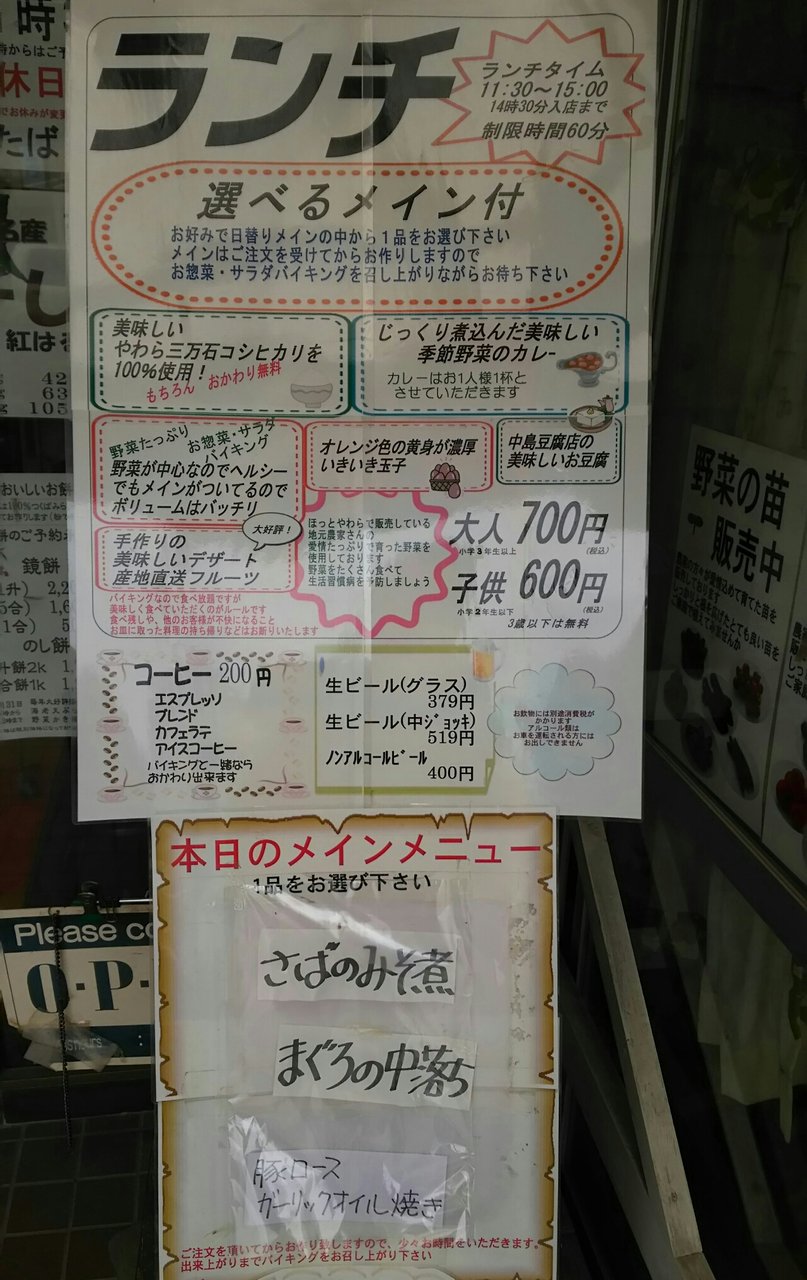 ランチ
ランチタイム
11:30～15:00
14時30分入店まで
制限時間60分
選べるメイン付
お好みで日替りメインの中から1品をお選び下さい
メインはご注文を受けてからお作りしますので
お惣菜・サラダバイキングを召し上がりながらお待ち下さい
美味しい
やわら三万石コシヒカリを
100%使用！
もちろん おかわり無料
じっくり煮込んだ美味しい
季節野菜のカレー
カレーはお1人様1杯と
させていただきます
野菜たっぷり
お惣菜・サラダ
バイキング
野菜が中心なのでヘルシー
でもメインがついてるので
ボリュームはバッチリ
オレンジ色の黄身が濃厚
いきいき玉子
中島豆腐店の
美味しいお豆腐
大好評！
手作りの
美味しいデザート
産地直送フルーツ
ほっとやわらで販売している
地元農家さんの
愛情たっぷりで育った野菜を
使用しております
野菜をたくさん食べて
生活習慣病を予防しましょう
大人 700円
小学3年生以上 (税込)
子供 600円
小学2年生以下 (税込)
3歳以下は無料
バイキングなので食べ放題ですが
美味しく食べていただくのがルールです
食べ残しや、他のお客様が不快になること
お皿に取った料理の持ち帰りなどはお断りいたします
コーヒー 200円
エスプレッソ
ブレンド
カフェラテ
アイスコーヒー
バイキングと一緒なら
おかわり出来ます
生ビール(グラス)
379円
生ビール(中ジョッキ)
519円
ノンアルコールビール
400円
お飲物には別途消費税が
かかります
アルコール類は
お車を運転される方には
お出しできません
本日のメインメニュー
1品をお選び下さい
さばのみそ煮
まぐろの中落ち
豚ロース
ガーリックオイル焼き
ご注文を頂いてからお作り致しますので、少々お時間をいただきます。
出来上がりまでバイキングをお召し上がり下さい
野菜の苗
販売中
Please co
O-P-
休日
たば
名産
紅は
42
63
105
鏡餅
のし餅